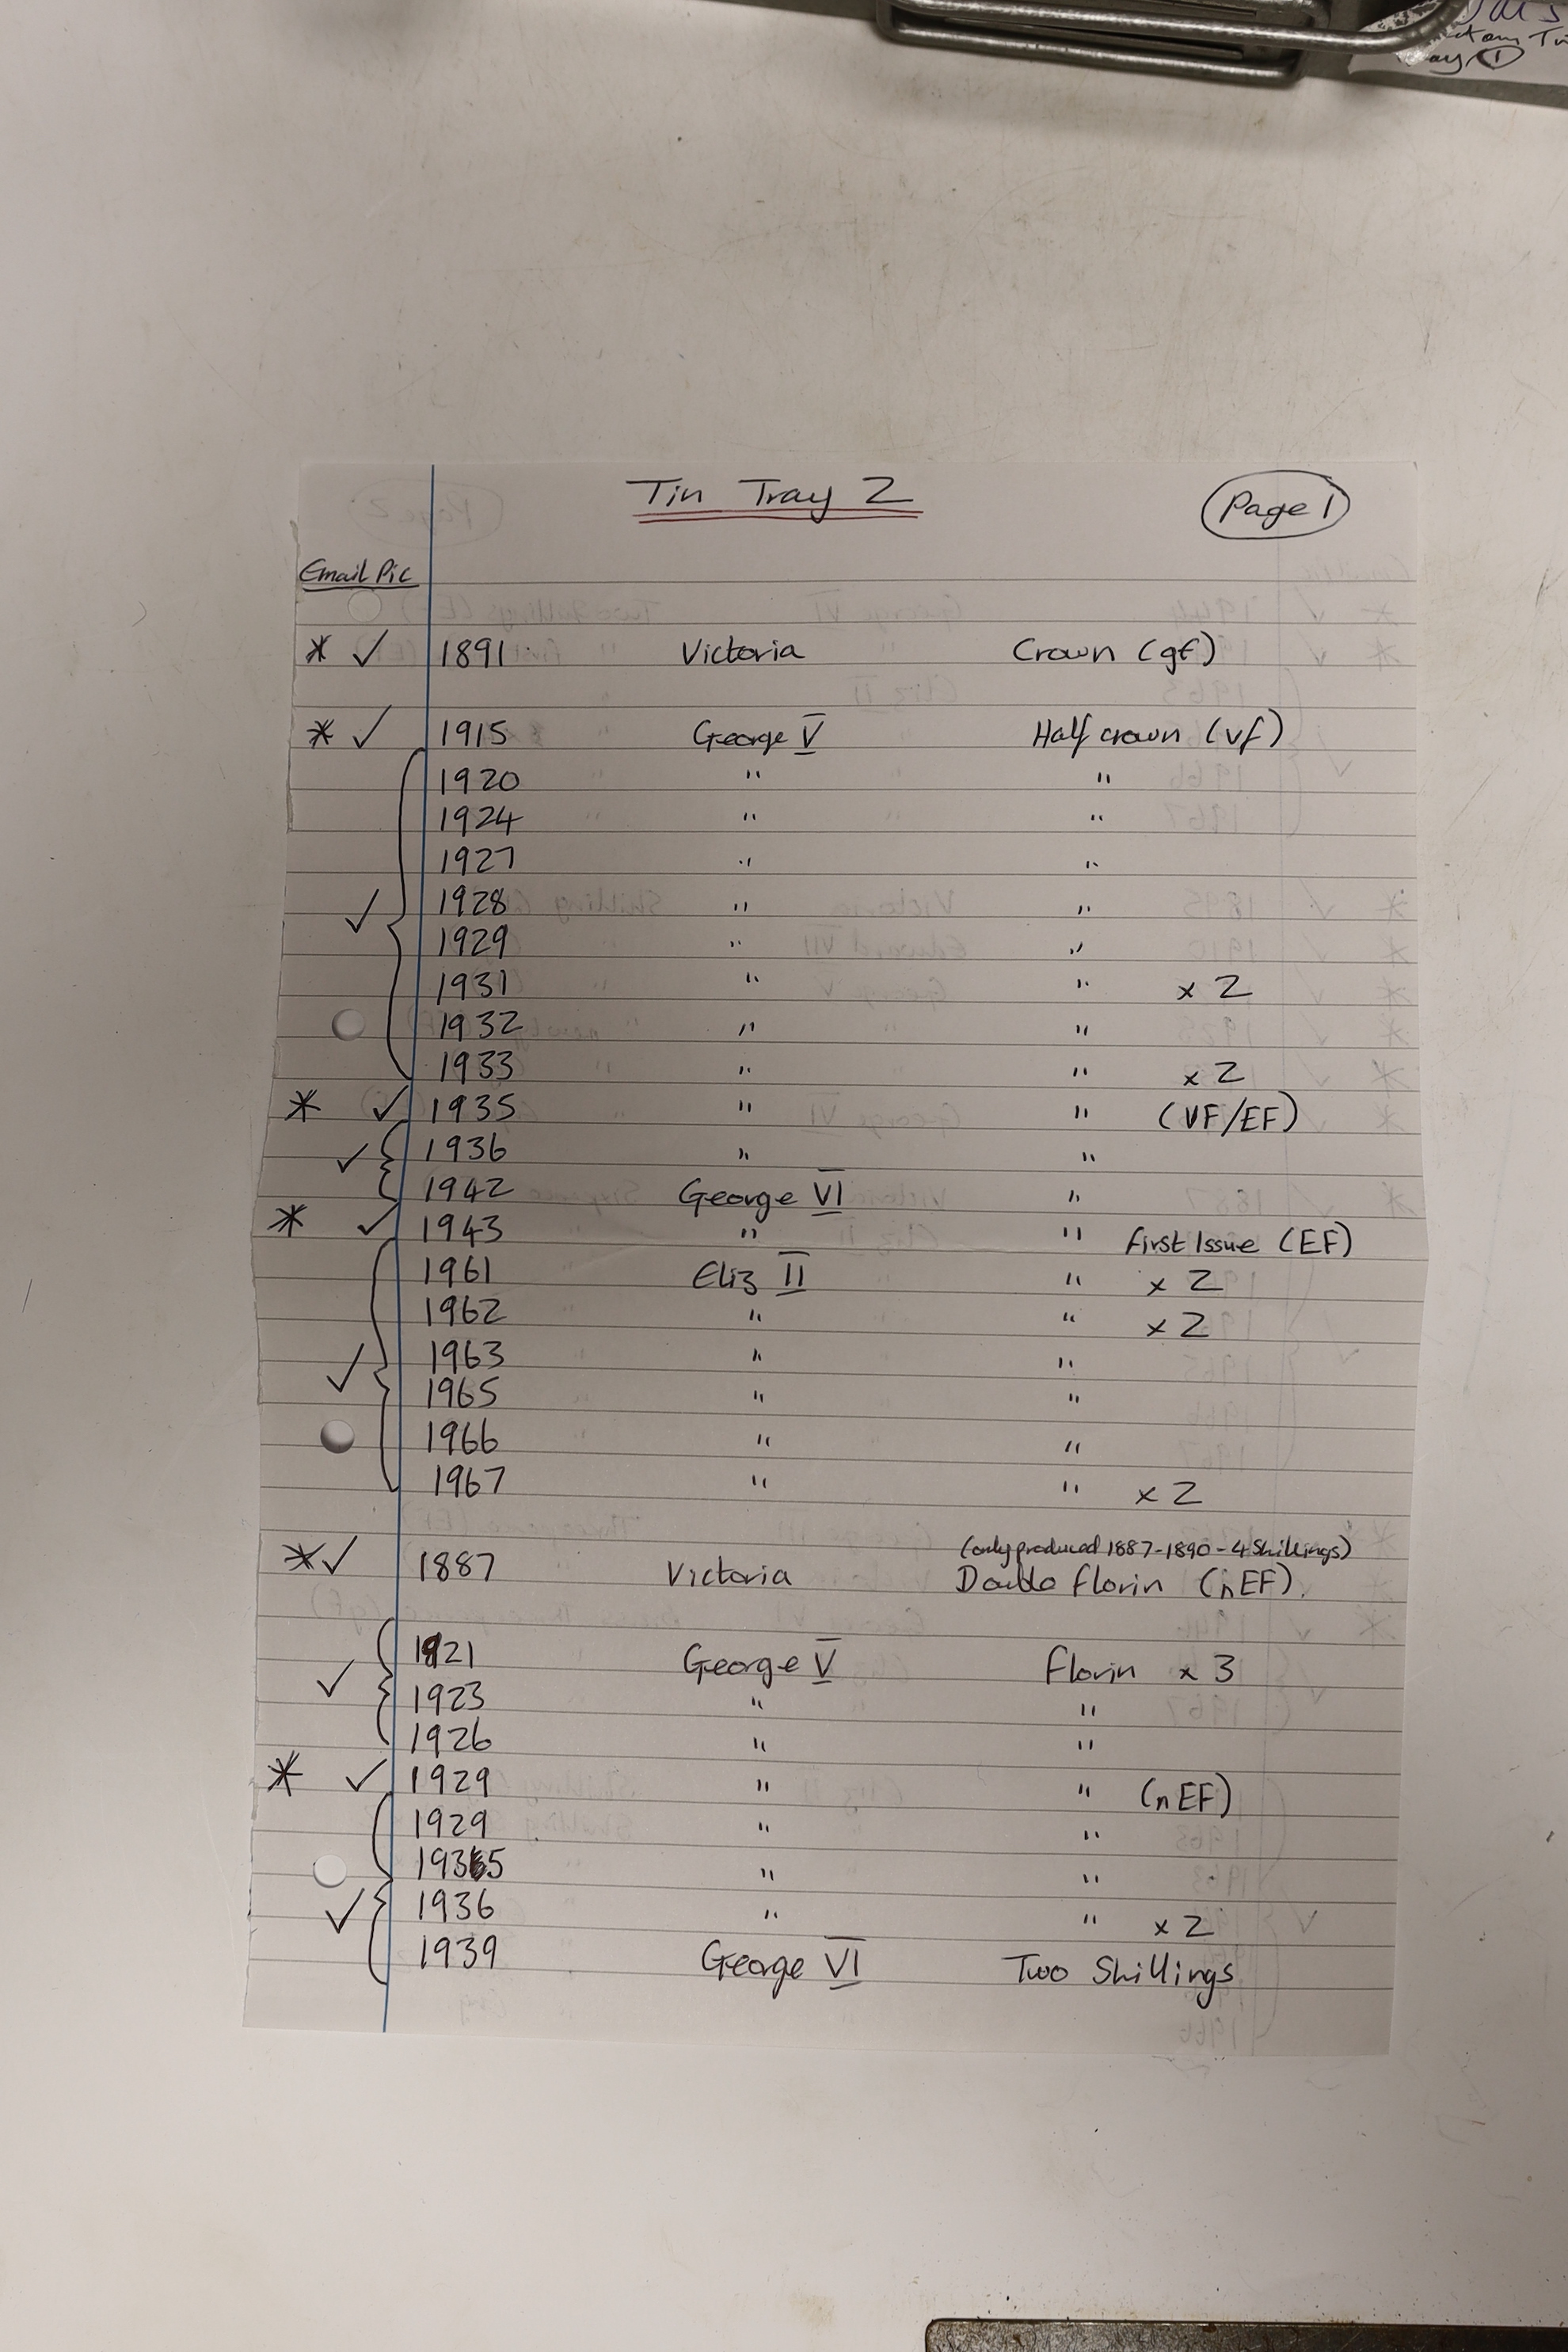 Tin Tray 2
Page 1
Email Pic
* ✓ 1891 Victoria Crown (gf)
* ✓ 1915 George V Half crown (vf)
1920 " "
1924 " "
1927 " "
✓ 1928 " "
1929 " "
1931 " " x 2
1932 " "
1933 " " x 2
* ✓ 1935 " " (VF/EF)
✓ 1936 " "
1942 George VI "
* ✓ 1943 " " first Issue (EF)
1961 Eliz II " x 2
1962 " " x 2
✓ 1963 " "
1965 " "
1966 " "
1967 " " x 2
(only produced 1887-1890 - 4 Shillings)
* ✓ 1887 Victoria Double florin (nEF).
1921 George V florin x 3
✓ 1923 " "
1926 " "
* ✓ 1929 " " (nEF)
1929 " "
1935 " "
✓ 1936 " " x 2
1939 George VI Two Shillings